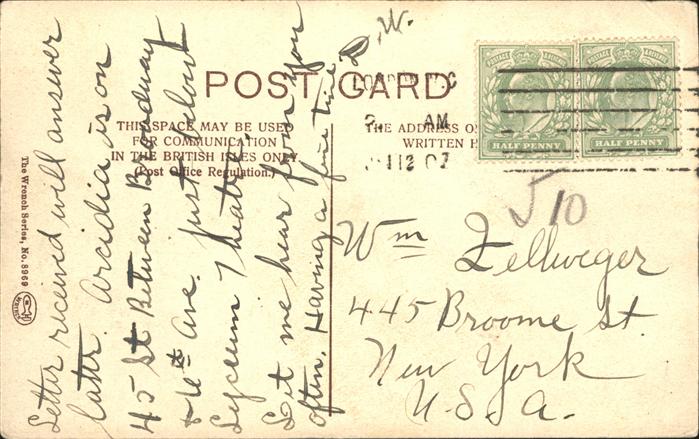 POST CARD
THIS SPACE MAY BE USED
FOR COMMUNICATION
IN THE BRITISH ISLES ONLY
(Post Office Regulation.)
THE ADDRESS O
WRITTEN H
LONDON W.C
AM
12 07
POSTAGE REVENUE
HALF PENNY
POSTAGE REVENUE
HALF PENNY
The Wrench Series, No. 8969
Letter received will answer
later. Arcidia is on
45 St Between Broadway
& 6th Ave. Just below
Lyceum Theatre.
Let me hear from you
often. Having a fine time
D. W.
J 10
Wm Zellweger
445 Broome St.
New York
U. S. A.